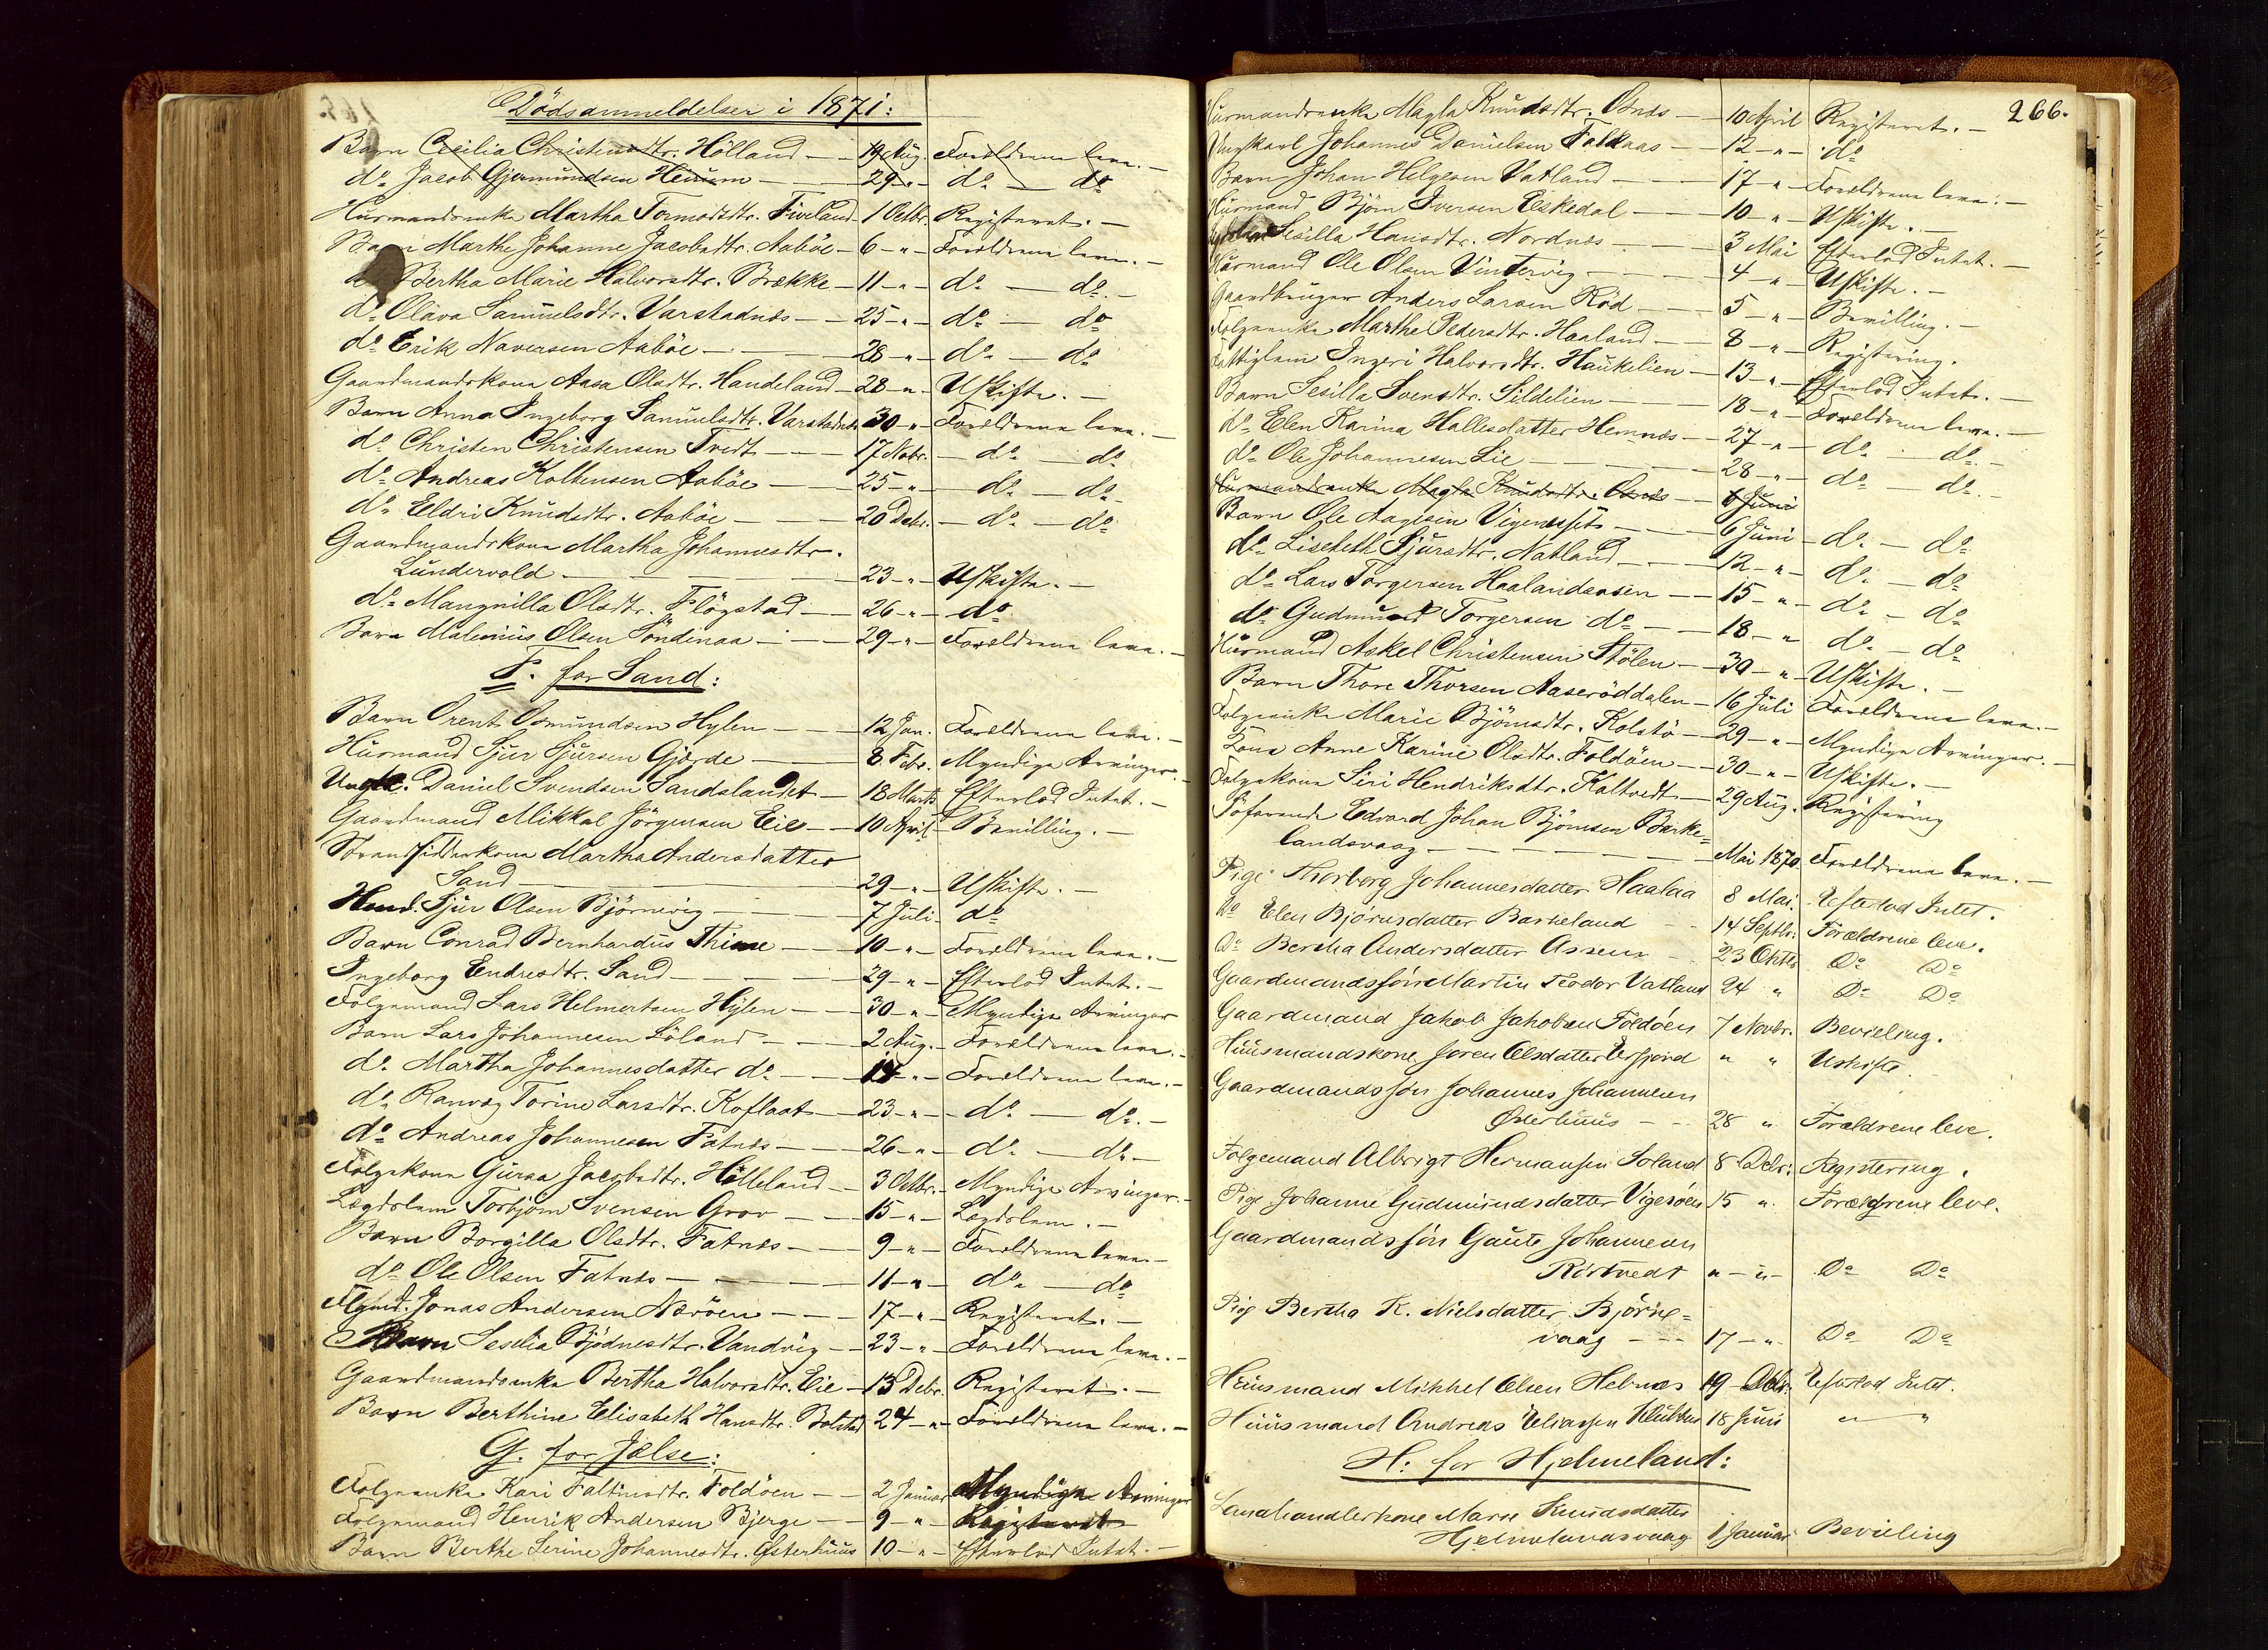 Dödsanmeldelser i 1871:
Barn Cecilia Christensdtr. Hölland — 19 Aug. Forældrene leve. —
do Jacob Gjermundsen Heuem — 29 " — do — do
Huusmandsenke Martha Tormodsdtr. Fiveland — 1 Octbr. Registeret. —
Barn Marthe Johanne Jacobsdtr. Aaböe — 6 — " — Forældrene leve. —
do Bertha Marie Halvorsdtr. Brække — 11 — " — do — do. —
do Olava Samuelsdtr. Varstadnæs — 25 — " — do — do
do Erik Naversen Aaböe — 28 — " — do — do
Gaardmandskone Aasa Olsdtr. Handeland — 28 — " — Uskifte. —
Barn Anna Ingeborg Samuelsdtr. Varstadnæs 30 — " — Forældrene leve. —
do Christen Christensen Tvedt — 17 Novbr. — do — do
do Andreas Koltensen Aaböe — 25 — " — do — do
do Eldri Knudsdtr. Aaböe — 20 Debr. — do — do
Gaardmandskone Martha Johannesdtr.
Lundervold — 23 — " — Uskifte. —
do Mangnilla Olsdtr. Flögstad — 26 — " — do
Barn Malenius Olsen Söndenaa — 29 — " — Forældrene leve. —
F. for Sand:
Barn Orent Osmundsen Hylen — 12 Jan. Forældrene leve. —
Huusmand Sjur Sjursen Gjerde — 8 Febr. Myndige Arvinger. —
Ungk. Daniel Svendsen Sandslandet — 18 Marts Efterlod Intet. —
Gaardmand Mikkal Jörgensen Eie — 10 April — Bevilling. —
Strandsidderkone Martha Andersdatter
Sand — 29 — " — Uskifte. —
Husmd. Sjur Olsen Björnevig — 7 Juli — do
Barn Conrad Bernhardus Thime — 10 — " — Forældrene leve. —
Ingeborg Endresdtr. Sand — 29 — " — Efterlod Intet. —
Folgemand Lars Helmertsen Hylen — 30 — " — Myndige Arvinger
Barn Lars Johannesen Löland — 2 Aug. — Forældrene leve. —
do Martha Johannesdatter do — 14 — " — Forældrene leve. —
do Ranvog Torine Larsdtr. Koflaat — 23 — " — do — do. —
do Andreas Johannesen Fatnæs — 26 — " — do — do —
Folgekone Guroa Jacobsdtr. Hölleland — 3 Octbr. — Myndige Arvinger. —
Lægdslem Torbjörn Svensen Grov — 15 — " — Lægdslem. —
Barn Borgilla Olsdtr. Fatnæs — 9 — " — Forældrene leve —
do Ole Olsen Fatnæs — 11 — " — do — do
Flgmd. Jonas Andersen Næröen — 17 — " — Registeret. —
Barn Seselia Bjödnesdtr. Vandvig — 23 — " — Forældrene leve. —
Gaardmandsenke Bertha Halvorsdtr. Eie — 13 Debr. Registeret. —
Barn Berthine Elisabeth Hansdtr. Bolstad 24 — " — Forældrene leve. —
G. for Jelse:
Folgeenke Kari Faltinsdtr. Foldöen — 2 Januar Myndige Arvinger
Folgemand Henrik Andersen Bjerge — 9 — " — Registeret
Barn Berthe Serine Johannesdtr. Østerhuus 10 — " — Efterlod Intet. —
266.
Huusmandsenke Magla Knudsdtr. Osnæs — 10 April Registeret. —
Ungkarl Johannes Danielsen Falkaas — 12 — " — do
Barn Johan Helgesen Vatland — 17 — " — Forældrene leve. —
Huusmand Björn Iversen Eskedal — 10 — " — Uskifte. —
Sesilla Hansdtr. Nordnæs — 3 Mai Efterlod Intet. —
Huusmand Ole Olsen Vintervig — 4 — " — Uskifte. —
Gaardbruger Anders Larsen Röd — 5 — " — Bevilling. —
Folgeenke Marthe Pedersdtr. Haaland — 8 — " — Registering.
Fattiglem Ingeri Halvorsdtr. Haukelien — 13 — " — Efterlod Intet. —
Barn Sesilla Svensdtr. Sildelien — 18 — " — Forældrene leve. —
do Elen Karina Hallesdatter Hemnæs — 27 — " — do — do. —
do Ole Johannesen Lie — 28 — " — do — do. —
Huusmandsenke Magla Knudsdtr. Osnæs — 6 Juni
Barn Ole Aagesen Vigenessæt — 6 Juni — do — do
do Lisebeth Sjursdtr. Natland — 12 — " — do — do
do Lars Torgersen Haalandsosen — 15 — " — do — do
do Gudmund Torgersen do — 18 — " do — do
Huusmand Askel Christensen Stölen — 30 — " — Uskifte. —
Barn Thore Thorsen Aaseröddalen — 16 Juli Forældrene leve. —
Folgeenke Marie Björnsdtr. Kolstö — 29 — " — Myndige Arvinger. —
Kone Anne Karine Olsdtr. Foldöen — 30 — " — Uskifte. —
Folgekone Siri Hendriksdtr. Kaltvedt — 29 Aug. Registering
Söfarende Edvard Johan Björnsen Barke=
landsvaag — Mai 1870 Forældrene leve. —
Pige Thorborg Johannesdatter Haalaa 8 Mai. Efterlod Intet.
Do Elen Bjørnsdatter Barkeland — 14 Septbr. Forældrene leve.
Do Bertha Andersdatter Assen — 23 Oktb Do Do
Gaardmandssön Martin Teodor Vatland 24 " Do Do
Gaardmand Jakob Jakobsen Foldöen 7 Novbr. Bevilling.
Huusmandskone Soren Olsdatter Erfjord " " Uskifte.
Gaardmandssøn Johannes Johannesen
Østerhuus — 28 " Forældrene leve.
Følgemand Albrigt Hermansen Soland 8 Debr. Registering.
Pige Johanne Gudmundsdatter Vigesøen 15 " Forældrene leve.
Gaardmandssøn Gaute Johannesen
Rørtvedt " — " — Do Do
Pige Bertha K. Nielsdatter Björne=
vaag — 17 — " Do Do
Huusmand Mikkel Olsen Hebnæs 19 Debr. Efterlod Intet.
Huusmand Andreas Eliassen Klubben 18 Juni " "
H. for Hjelmeland:
Landhandlerkone Maren Knudsdatter
Hjelmelandsvaag 1 Januar Bevilling